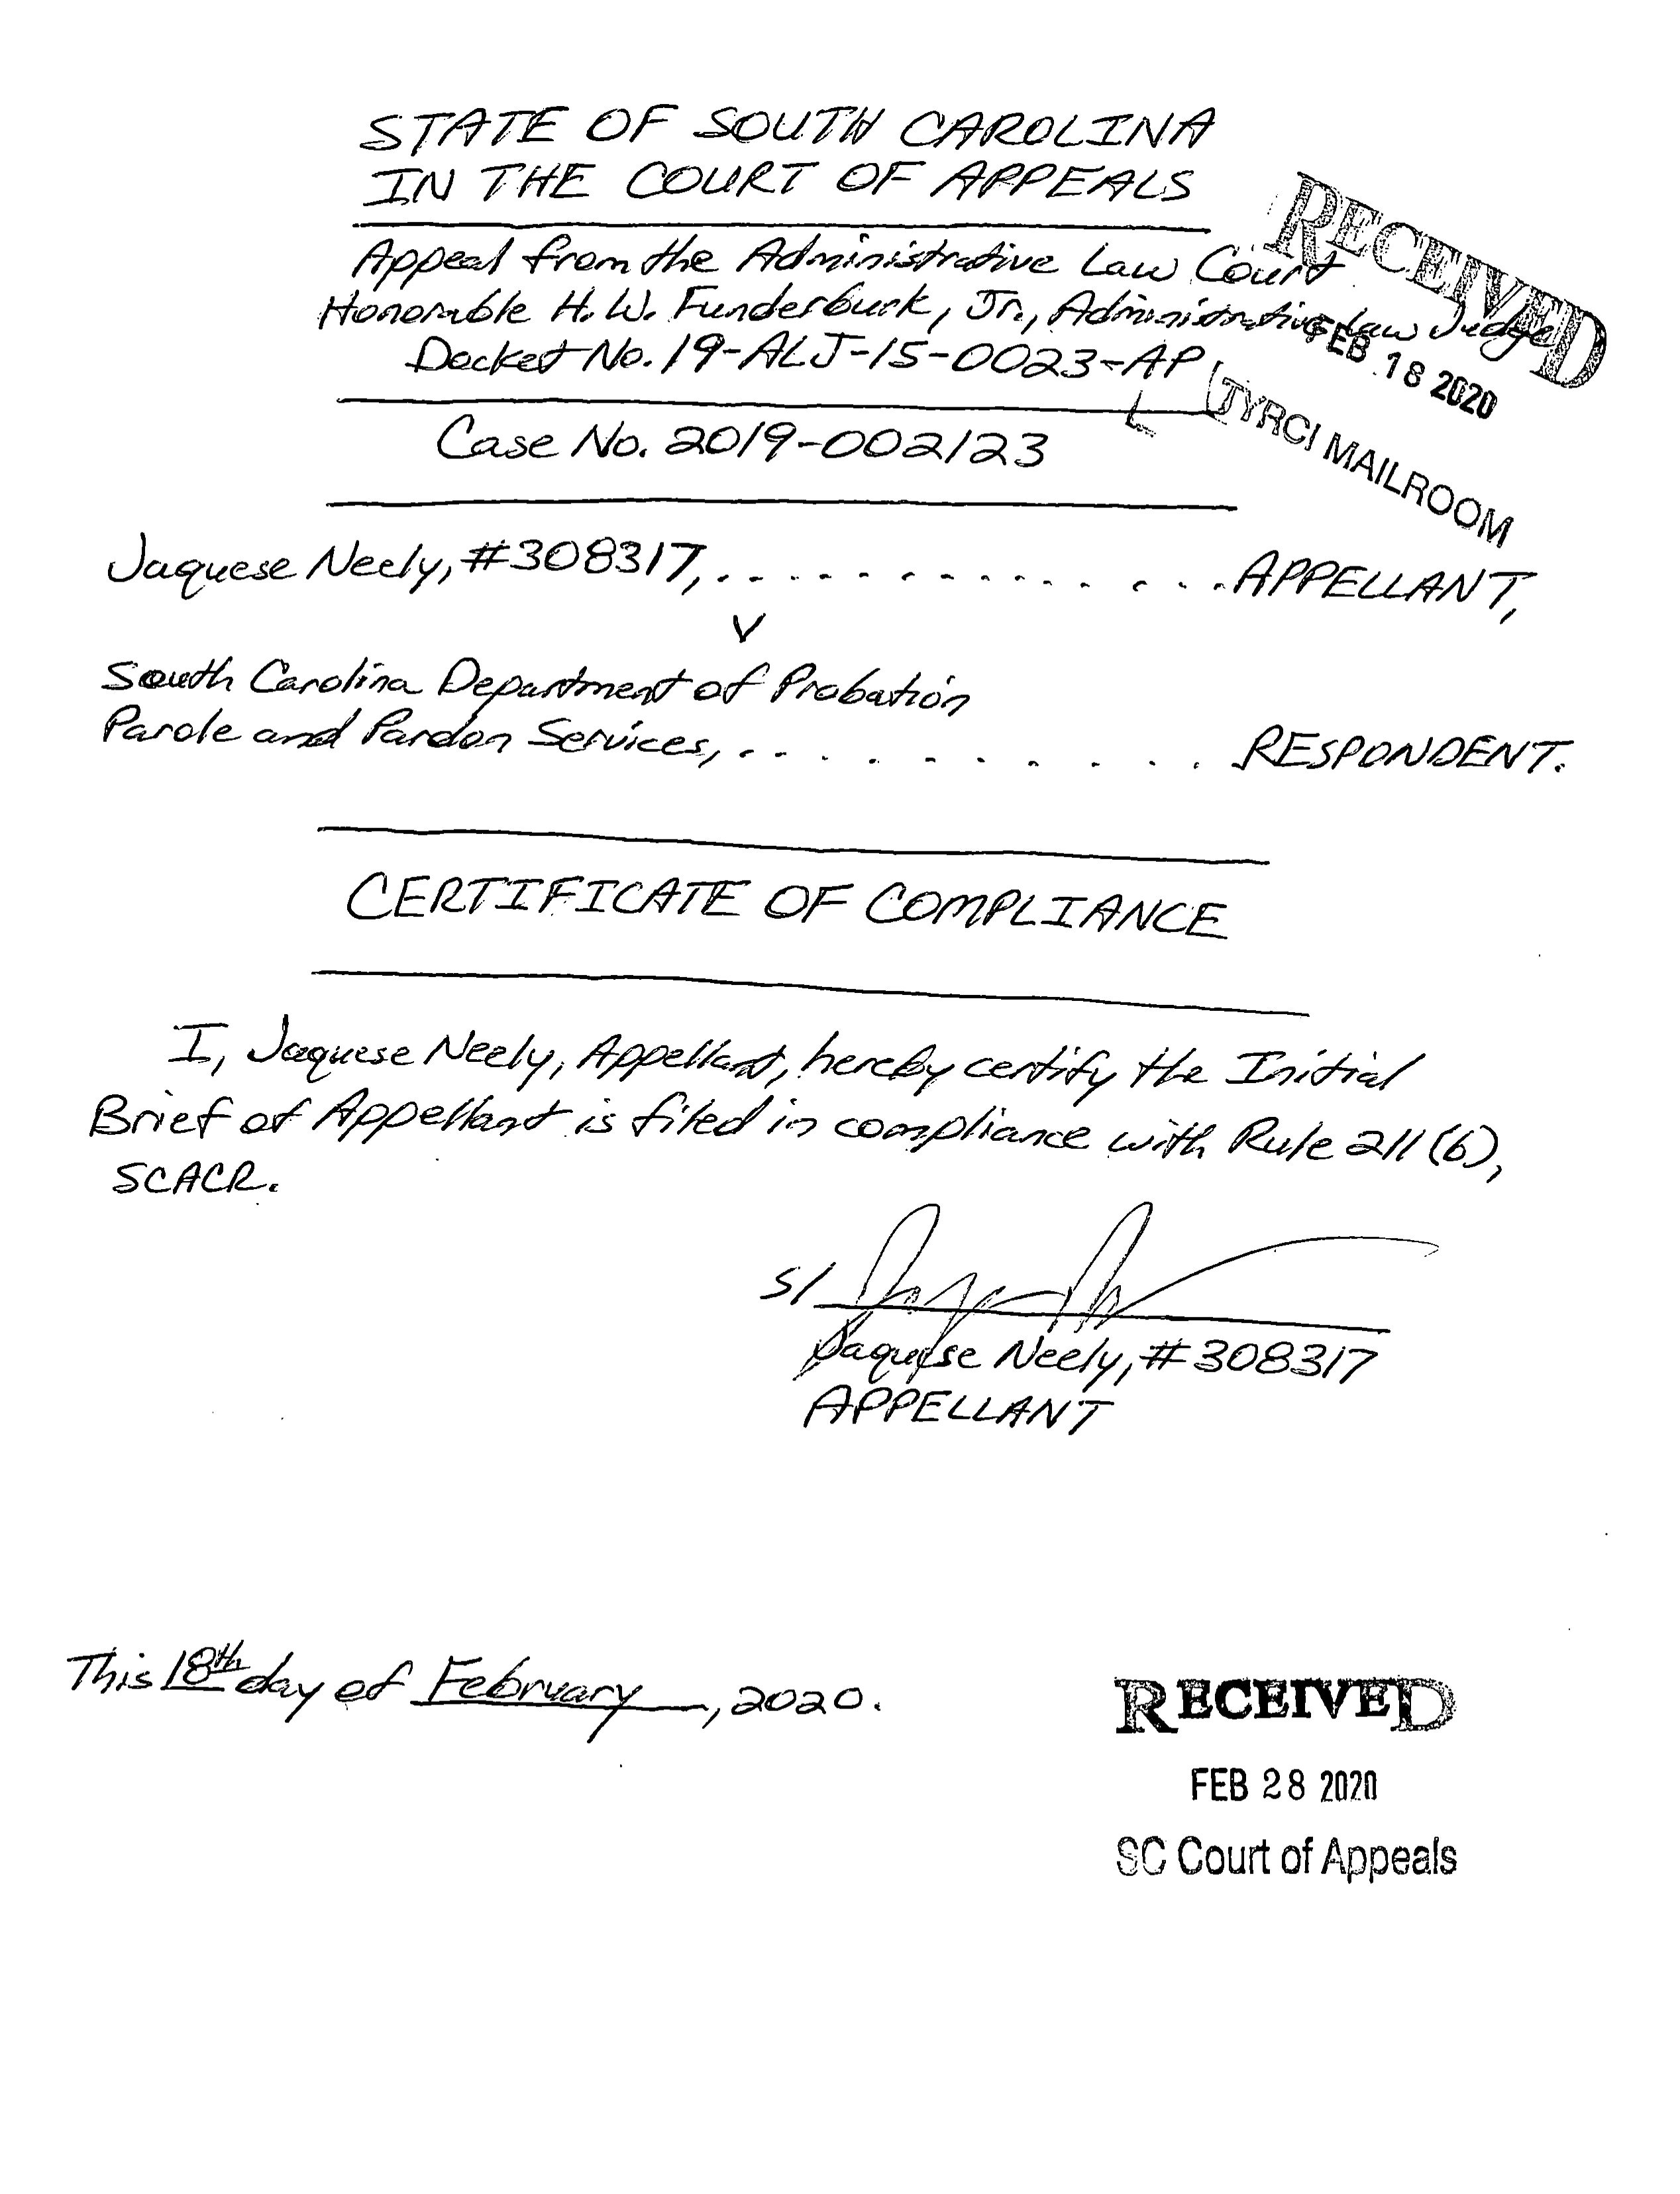 STATE OF SOUTH CAROLINA
IN THE COURT OF APPEALS
Appeal from the Administrative Law Court
Honorable H. W. Funderburk, Jr., Administrative Law Judge
Docket No. 19-ALJ-15-0023-AP
RECEIVED
FEB 18 2020
TYRCI MAILROOM
Case No. 2019-002123
Jaquese Neely, #308317, . . . . . . . . . . . . . . . APPELLANT,
v
South Carolina Department of Probation
Parole and Pardon Services, . . . . . . . . . . RESPONDENT.
CERTIFICATE OF COMPLIANCE
I, Jaquese Neely, Appellant, hereby certify the Initial
Brief of Appellant is filed in compliance with Rule 211(b),
SCACR.
S/
Jaquese Neely, #308317
APPELLANT
This 18th day of February, 2020.
RECEIVED
FEB 28 2020
SC Court of Appeals